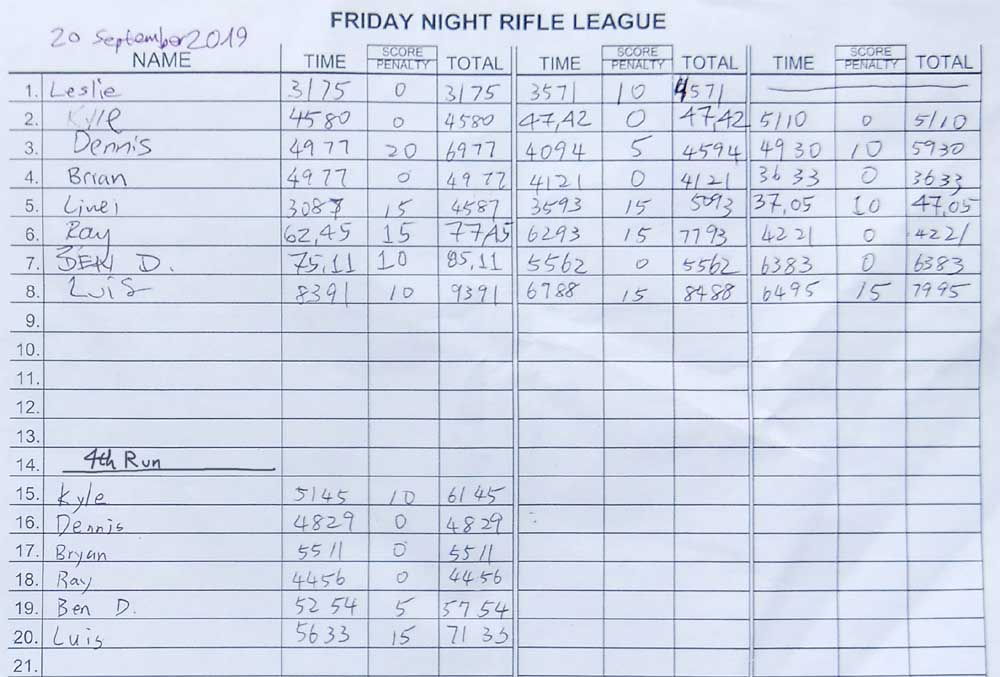 FRIDAY NIGHT RIFLE LEAGUE
20 September 2019
NAME TIME SCORE PENALTY TOTAL TIME SCORE PENALTY TOTAL TIME SCORE PENALTY TOTAL
1. Leslie 3175 0 3175 3571 10 4571
2. Kyle 4580 0 4580 47,42 0 47,42 5110 0 5110
3. Dennis 4977 20 6977 4094 5 4594 4930 10 5930
4. Brian 4977 0 4977 4121 0 4121 3633 0 3633
5. 3087 15 4587 3593 15 5093 37,05 10 47,05
6. Ray 62,45 15 77,45 6293 15 7793 4221 0 4221
7. BEN D. 75,11 10 85,11 5562 0 5562 6383 0 6383
8. Luis 8391 10 9391 6788 15 8488 6495 15 7995
9.
10.
11.
12.
13.
14. 4th Run
15. Kyle 5145 10 6145
16. Dennis 4829 0 4829
17. Bryan 5511 0 5511
18. Ray 4456 0 4456
19. Ben D. 5254 5 5754
20. Luis 5633 15 7133
21.